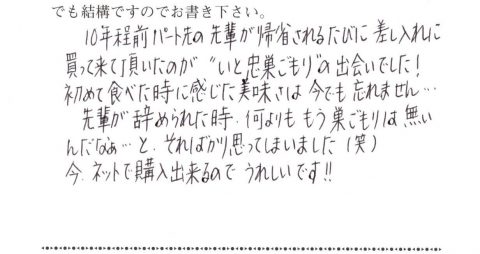 でも結構ですのでお書き下さい。
10年程前パート先の先輩が帰省されるたびに差し入れに
買って来て頂いたのが "いと忠巣ごもり"の出会いでした!
初めて食べた時に感じた美味さは今でも忘れません…
先輩が辞められた時、何よりももう巣ごもりは無い
んだなぁ…と、そればかり思ってしまいました(笑)
今、ネットで購入出来るのでうれしいです!!